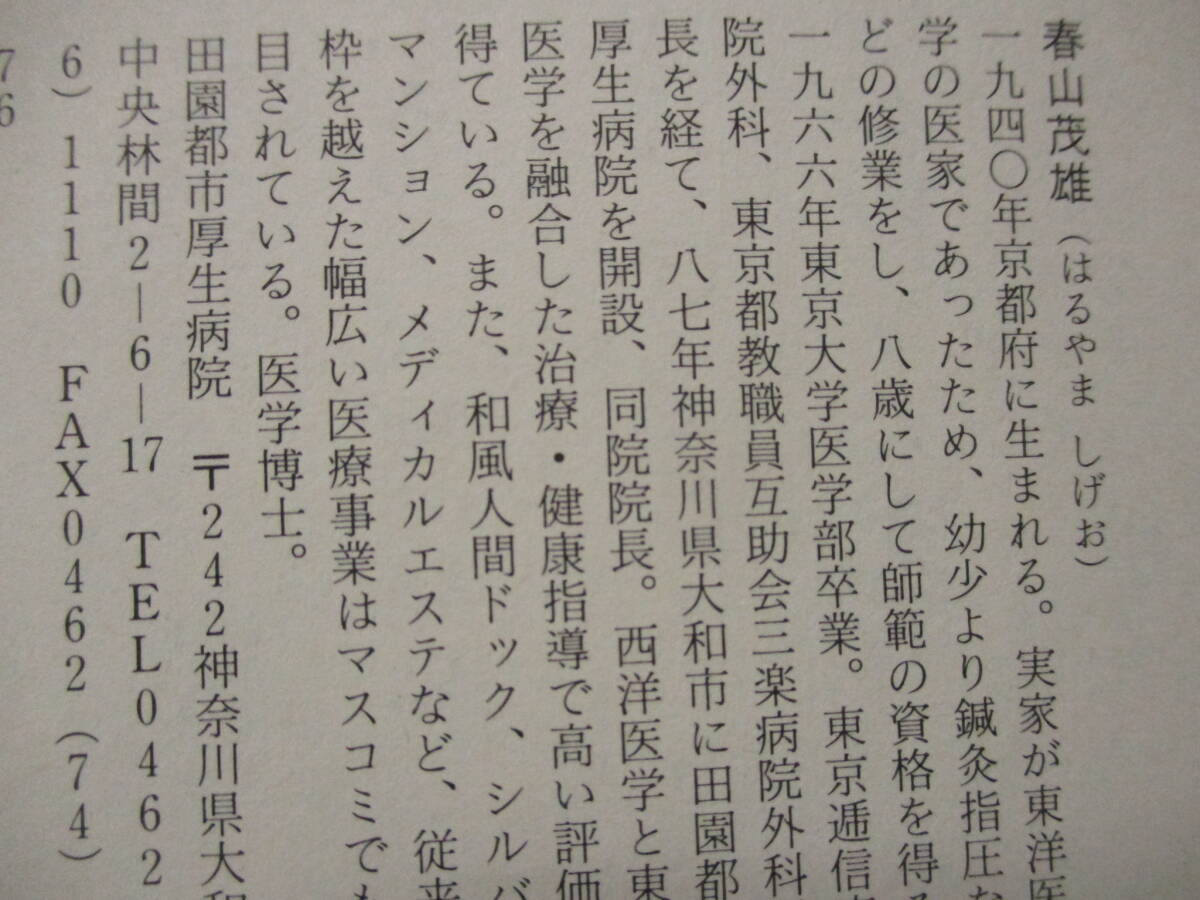 春山茂雄（はるやま しげお）
一九四〇年京都府に生まれる。実家が東洋医
学の医家であったため、幼少より鍼灸指圧な
どの修業をし、八歳にして師範の資格を得る
一九六六年東京大学医学部卒業。東京逓信
院外科、東京都教職員互助会三楽病院外科
長を経て、八七年神奈川県大和市に田園都
厚生病院を開設、同院院長。西洋医学と東
医学を融合した治療・健康指導で高い評価
得ている。また、和風人間ドック、シルバ
マンション、メディカルエステなど、従来
枠を越えた幅広い医療事業はマスコミでも
目されている。医学博士。
田園都市厚生病院 〒242神奈川県大和
中央林間2―6―17 TEL0462
6）1110 FAX0462（74）
76